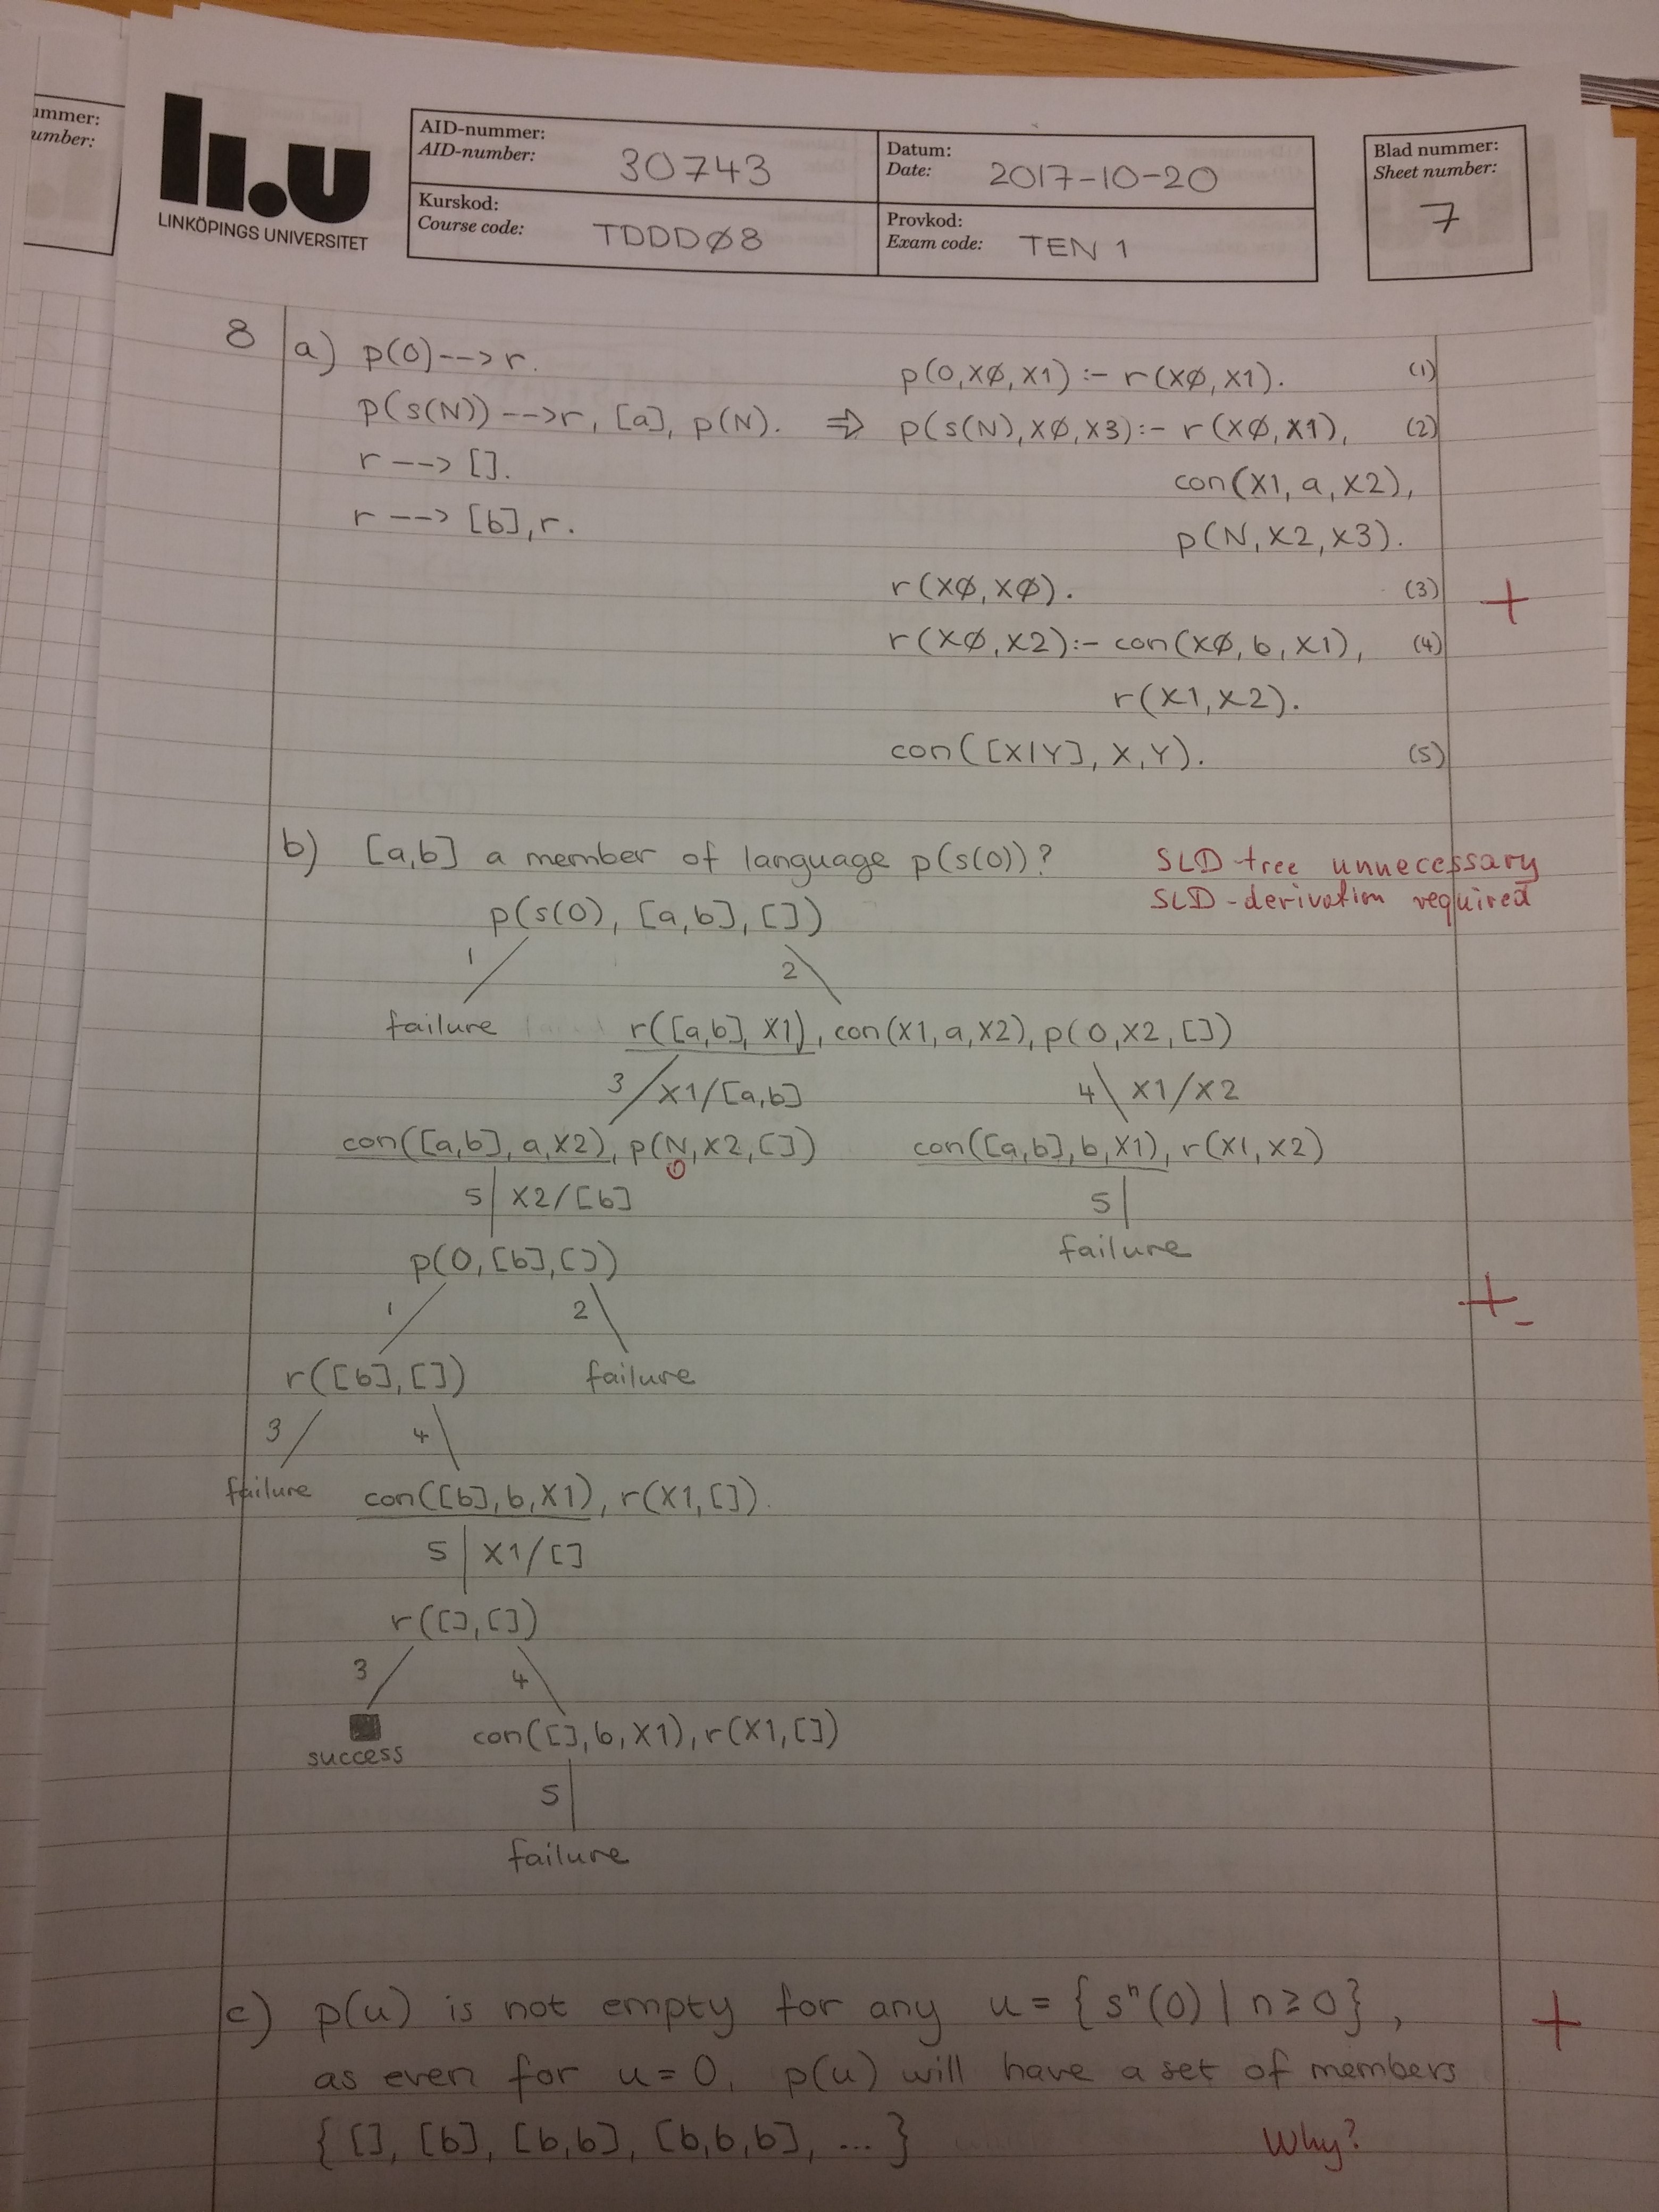 ummer:
umber:
li.u
LINKÖPINGS UNIVERSITET
AID-nummer:
AID-number: 30743
Datum:
Date: 2017-10-20
Blad nummer:
Sheet number:
7
Kurskod:
Course code: TDDDØ8
Provkod:
Exam code: TEN 1
8 a) p(0)-->r. p(0,XØ,X1) :- r(XØ,X1). (1)
p(s(N))-->r, [a], p(N). => p(s(N),XØ,X3):- r(XØ,X1), (2)
r --> []. con(X1, a, X2),
r --> [b],r. p(N,X2,X3).
r(XØ,XØ). (3) +
r(XØ,X2):- con(XØ,b,X1), (4)
r(X1,X2).
con([X|Y],X,Y). (5)
b) [a,b] a member of language p(s(0))? SLD-tree unnecessary
SLD-derivation required
p(s(0), [a,b], [])
1 2
failure r([a,b], X1), con(X1,a,X2), p(0,X2,[])
3 X1/[a,b] 4 X1/X2
con([a,b],a,X2), p(N,X2,[]) con([a,b],b,X1), r(X1,X2)
0
5 X2/[b] 5
p(0,[b],[]) failure
1 2 +-
r([b],[]) failure
3 4
failure con([b],b,X1), r(X1,[]).
5 X1/[]
r([],[])
3 4
success con([],b,X1),r(X1,[])
5
failure
c) p(u) is not empty for any u = {sⁿ(0) | n≥0}, +
as even for u=0, p(u) will have a set of members
{ [], [b], [b,b], [b,b,b], ... } Why?